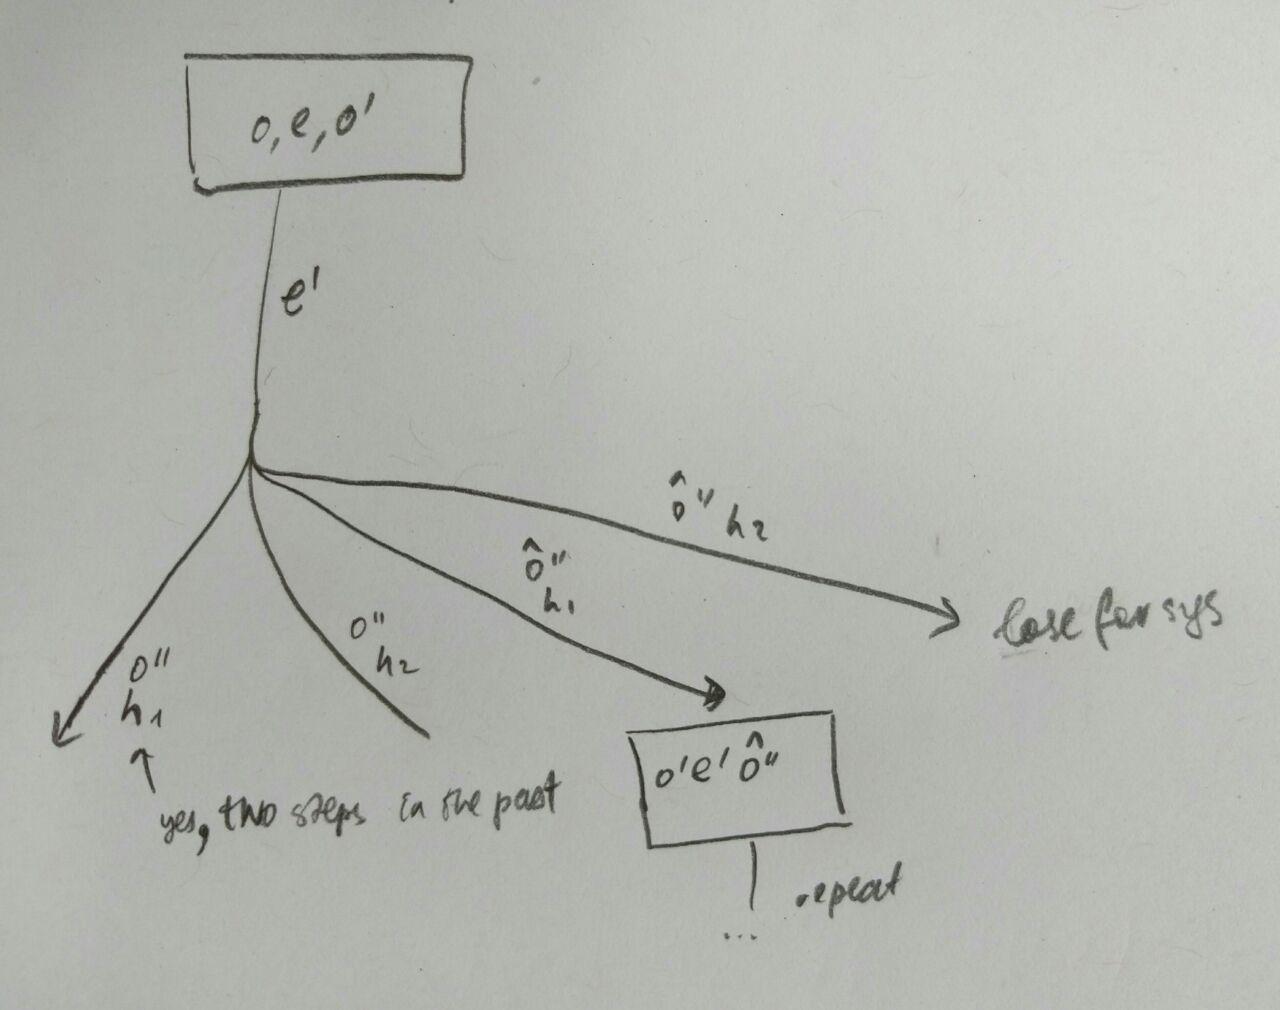 o, e, o'
e'
ô'' h₂
lose for sys
ô''
h₁
o''
h₂
o''
h₁
yes, two steps in the past
o'e'ô''
repeat
...